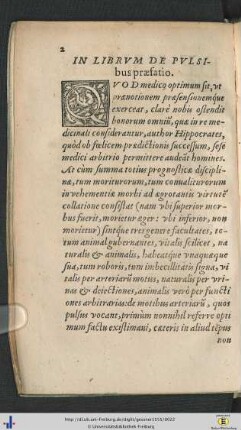 2
IN LIBRVM DE PVLSI-
bus præfatio.
QVOD medico optimum sit, vt
prænotionem præsensionemque
exerceat, clarè nobis ostendit
bonorum omniũ, quæ in re me-
dicinali considerantur, author Hippocrates,
quòd ob fœlicem prædictionis successum, sese
medici arbitrio permittere audeāt homines.
At cùm summa totius prognosticæ discipli-
næ, tum moriturorum, tum conualiturorum
in vehementiæ morbi ad ægrotantis virtutē
collatione consistat (nam vbi superior mor-
bus fuerit, morietur æger: vbi inferior, non
morietur) sintque tres genere facultates, to-
tum animal gubernantes, vitalis scilicet, na
turalis & animalis, habeatque vnaquæque
sua, tum roboris, tum imbecillitatis signa, vi
talis per arteriarũ motus, naturalis per vri-
nas & deiectiones, animalis verò per functi
ones arbitrarias: de motibus arteriarũ, quos
pulsus vocant, primùm nonnihil referre opti
mum factu existimaui, cæteris in aliud tēpus
non
http://dl.ub.uni-freiburg.de/diglit/
© Universitätsbibliothek Freiburg